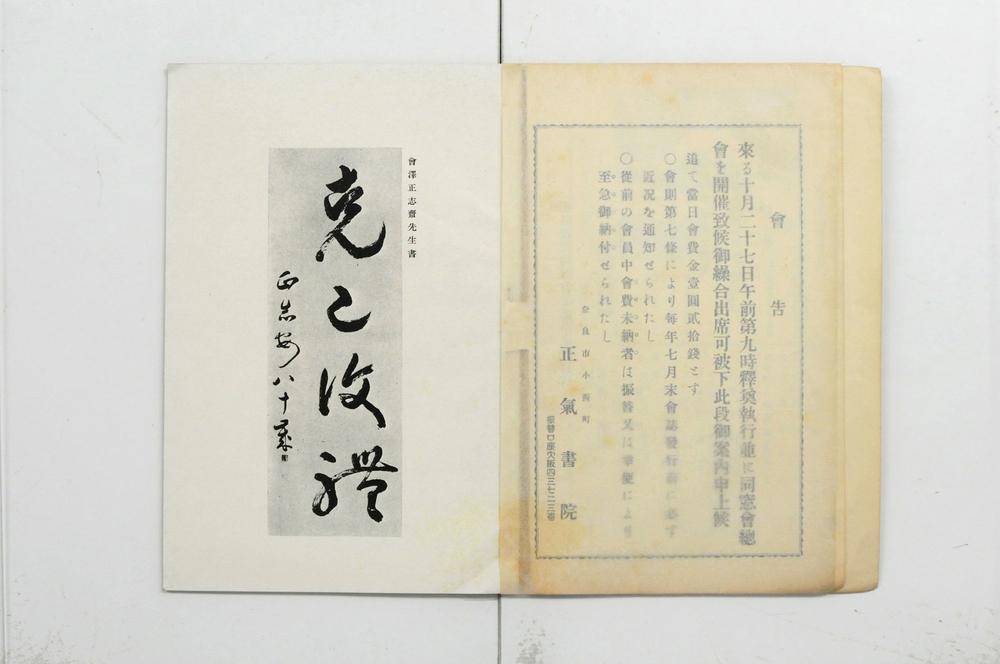 會告
來る十月二十七日午前第九時釋奠執行並に同窓會總
會を開催致候御繰合出席可被下此段御案內申上候
追て當日會費金壹圓貳拾錢とす
〇會則第七條により每年七月末會誌發行前に必ず
近況を通知せられたし
〇從前の會員中會費未納者は振替又は幸便により
至急御納付せられたし
奈良市小西町
正氣書院
振替口座大阪四三七二三番
會澤正志齋先生書
克己復禮
正志安八十